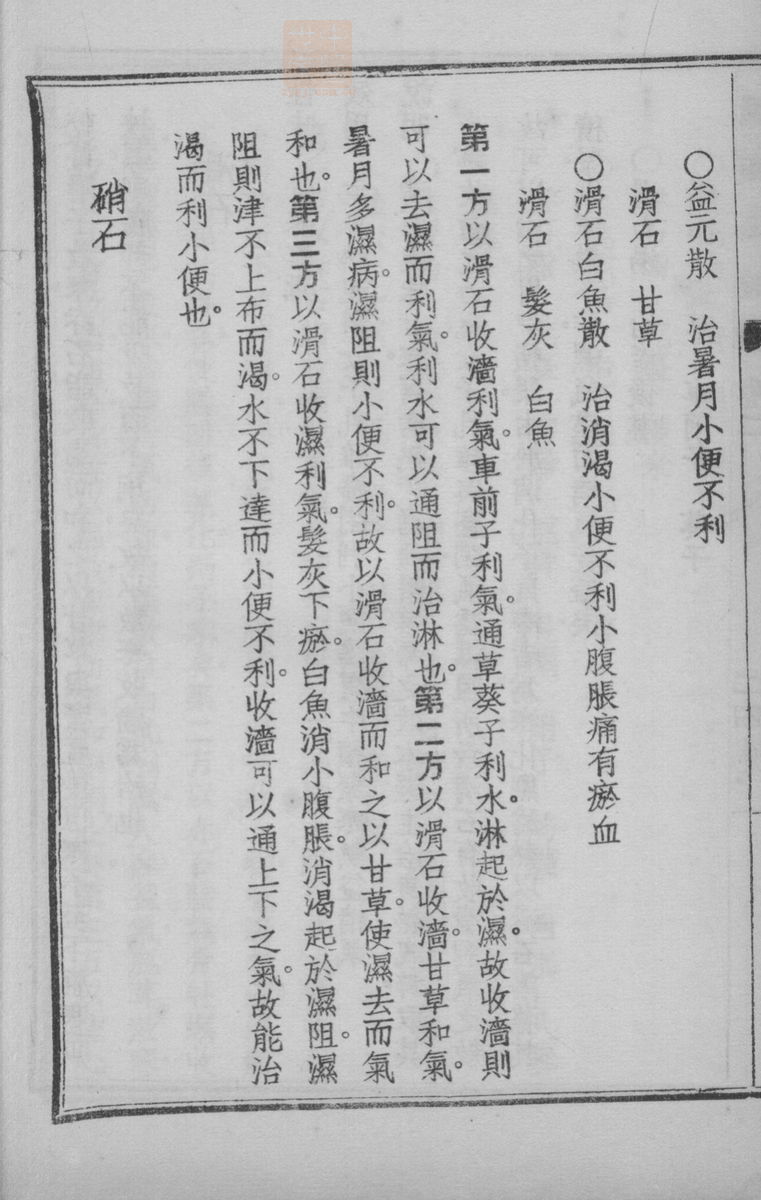 ○益元散　治暑月小便不利
滑石　甘草
○滑石白魚散　治消渴小便不利小腹脹痛有瘀血
滑石　髮灰　白魚
第一方以滑石收濇利氣。車前子利氣。通草葵子利水。淋起於濕。故收濇則
可以去濕而利氣。利水可以通阻而治淋也。第二方以滑石收濇。甘草和氣。
暑月多濕病。濕阻則小便不利。故以滑石收濇而和之以甘草。使濕去而氣
和也。第三方以滑石收濕利氣。髮灰下瘀。白魚消小腹脹。消渴起於濕阻。濕
阻則津不上布而渴。水不下達而小便不利。收濇可以通上下之氣。故能治
渴而利小便也。
硝石